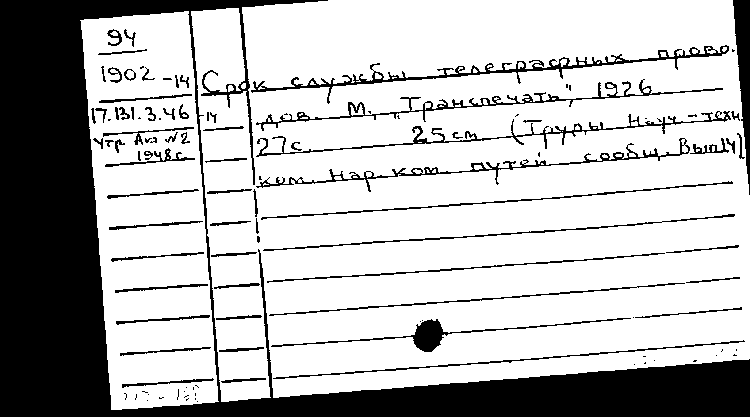 94
1902-14
17.131.3.46
Утр. Акт №2
1948 г.
14
Срок службы телеграфных прово-
дов. М., "Транспечать", 1926
27 с. 25 см (Труды Науч-техн.
ком. Нар. ком. путей сообщ. Вып 14)